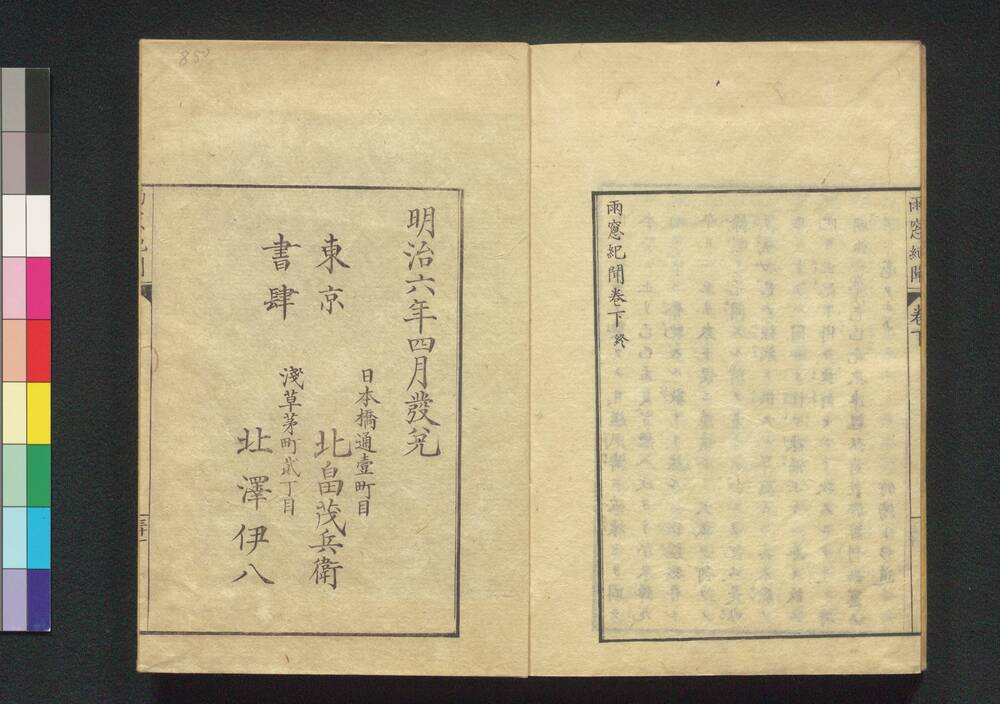 雨窓紀聞
卷下
雨窓紀聞卷下終
明治六年四月發兌
東京
書肆
日本橋通壹町目
北畠茂兵衛
淺草茅町貮丁目
北澤伊八
三十一
850